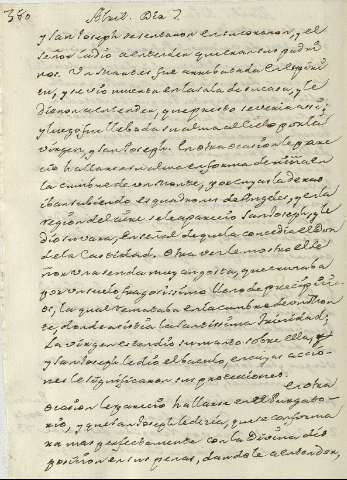 380 Abril. Dia 7
y San Joseph se sentaron en su corazon, y el
Señor la dio a entender que eran sus padri-
nos. Un Martes fue arrebatada en espiri-
tu, y se vio muerta en la sala de su casa, y le
dieron a entender, que presto se veria assi;
y luego fue llebada su alma al Cielo por la
Virgen, y San Joseph. En otra ocasion le pare-
cio hallarse su alma en forma de niña en
la cumbre de un Monte, y por cuyas laderas
iban subiendo esquadrones de Angeles, y en la
region del aire se le aparecio San Joseph, y le
dio su vara, en señal de que la concedia el Don
de la Castidad. Otra vez le mostro el Se-
ñor una senda muy angosta, que cruzaba
por un suelo fragosissimo lleno de precipicios,
la qual remataba en la cumbre de un Mon-
te, donde asistia la Santissima Trinidad;
La Virgen estendio su manto sobre ella, y
y San Joseph le dio el baculo, en cuyas accio-
nes le significaron sus protecciones.
En otra
ocasion le parecio hallarse en el Purgato-
rio, y que San Joseph le decia, que se conforma-
ra mas perfectamente con la Divina dis-
posicion en sus penas, dandole a entender,